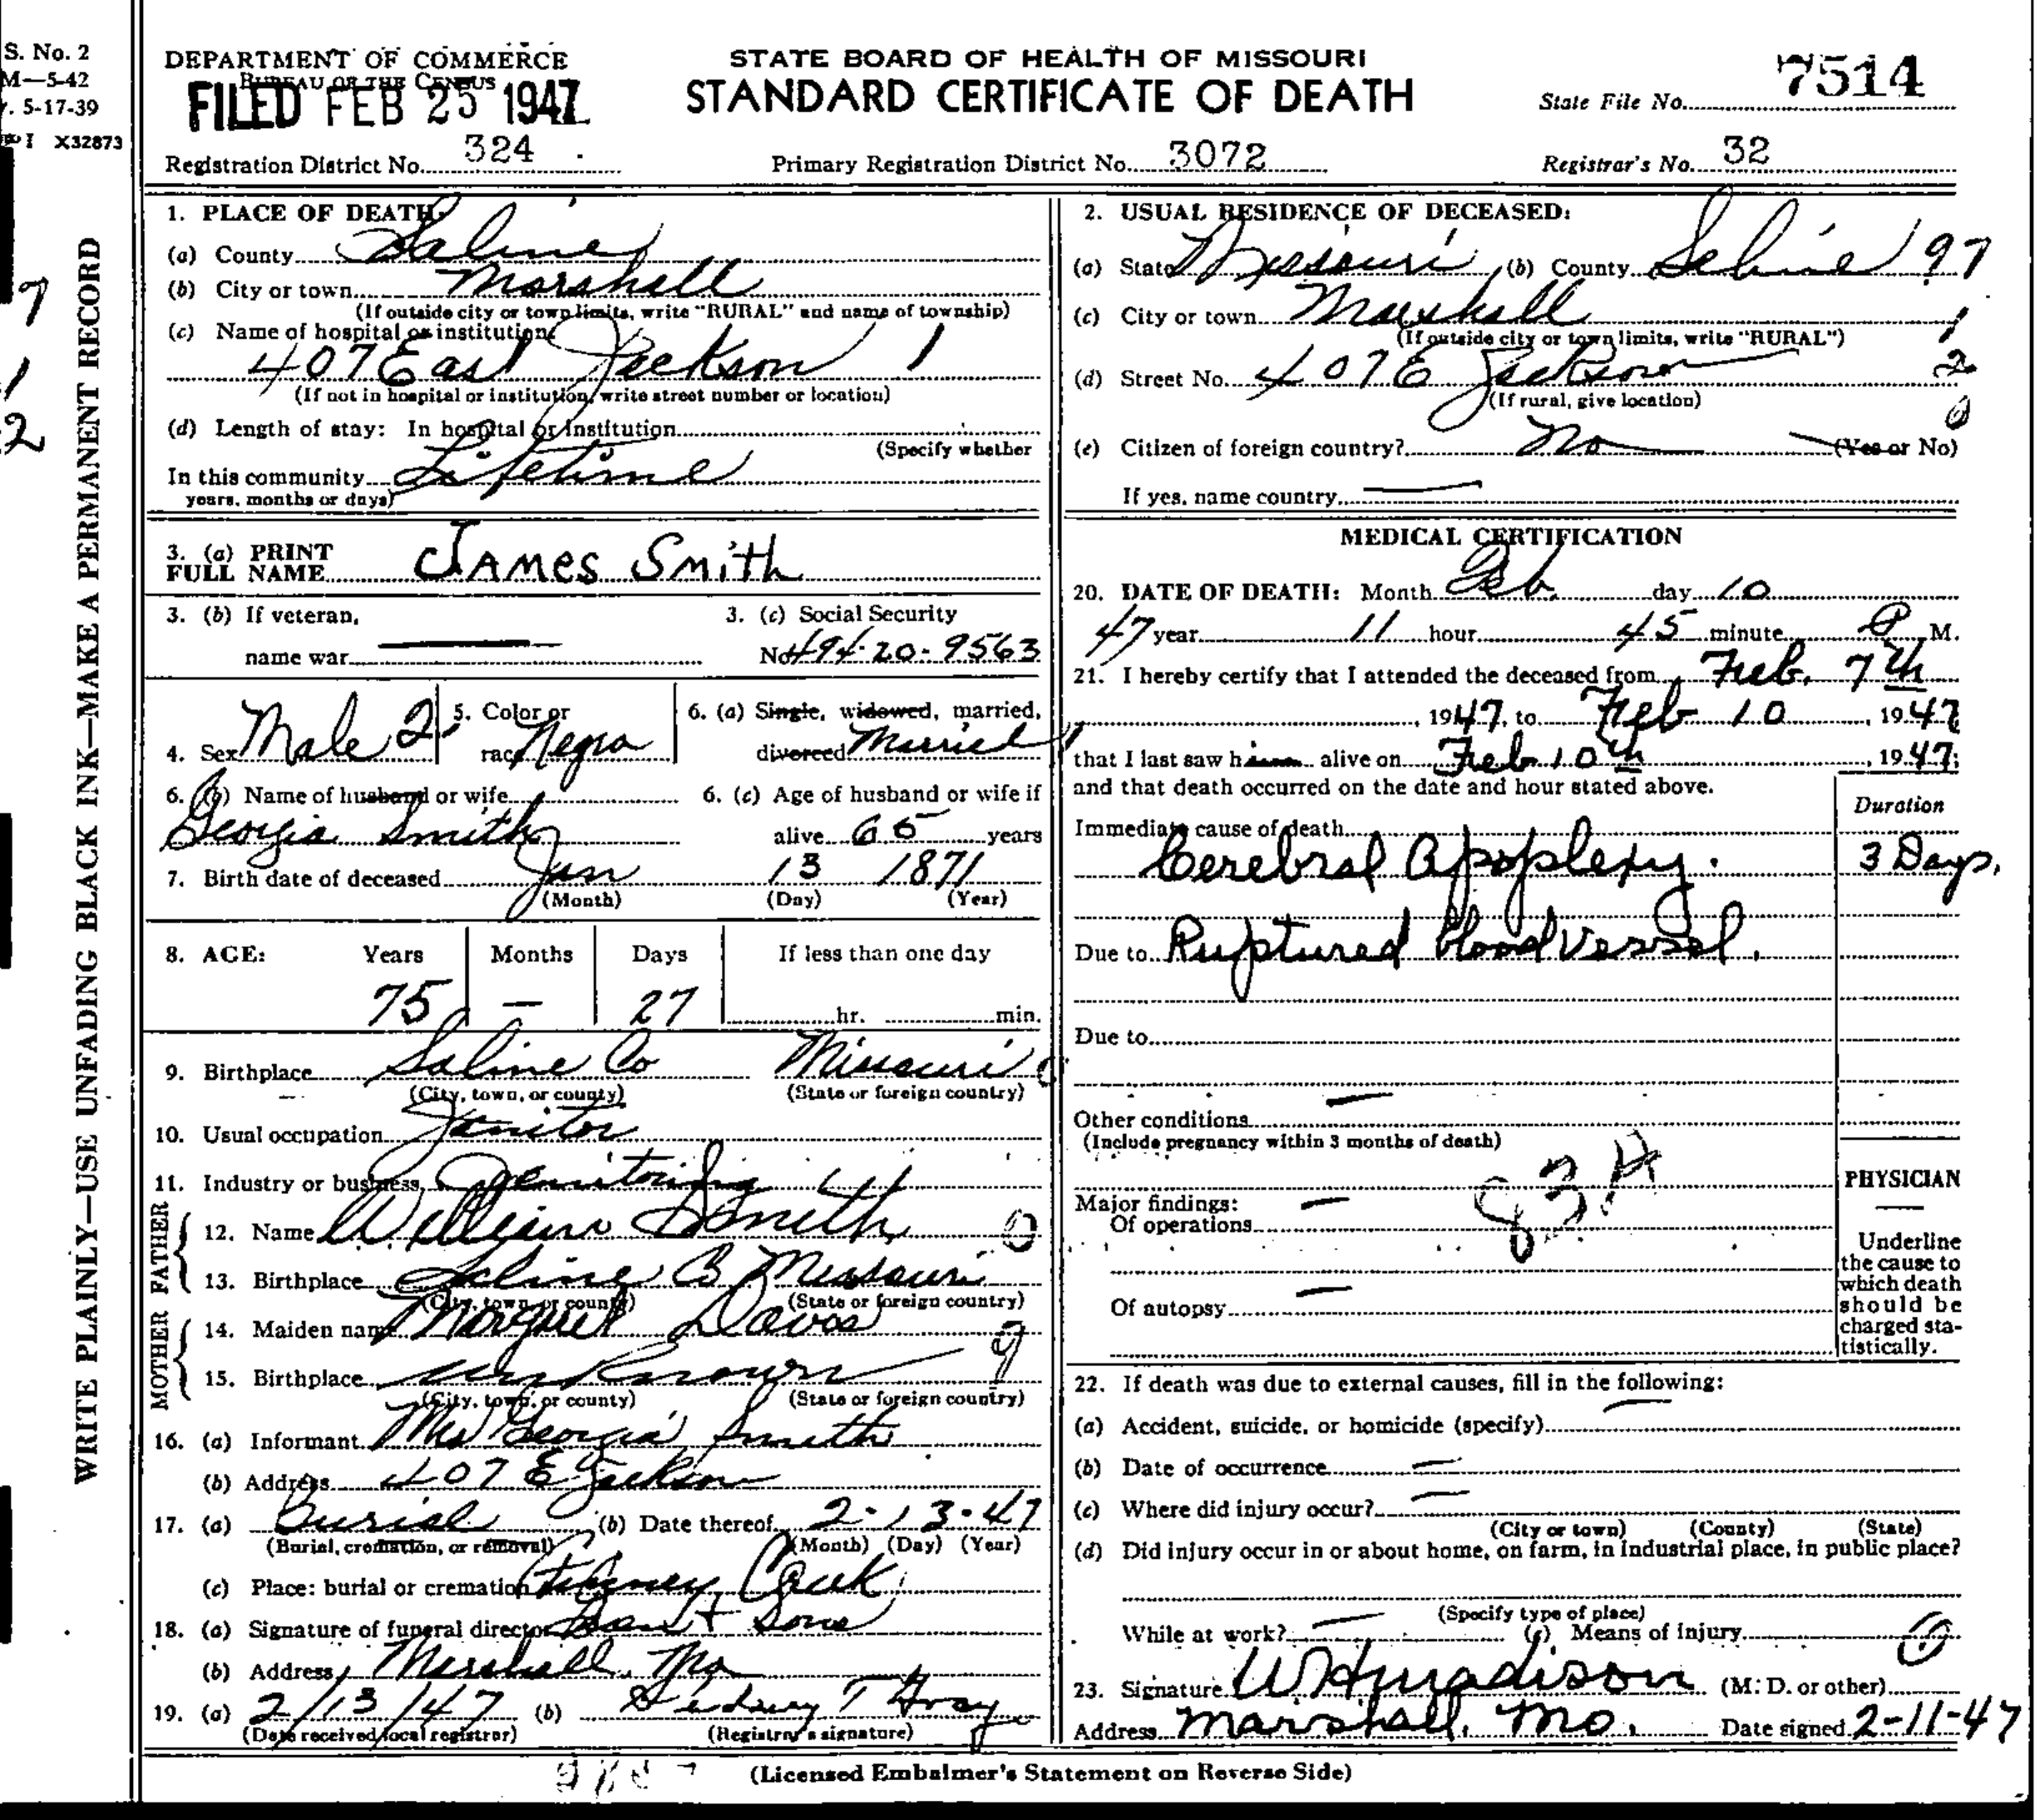 S. No. 2
M—5-42
. 5-17-39
I X32873
WRITE PLAINLY—USE UNFADING BLACK INK—MAKE A PERMANENT RECORD
7
1
2
DEPARTMENT OF COMMERCE
BUREAU OF THE CENSUS
FILED FEB 25 1947
STATE BOARD OF HEALTH OF MISSOURI
STANDARD CERTIFICATE OF DEATH
State File No. 7514
Registration District No. 324
Primary Registration District No. 3072
Registrar's No. 32
1. PLACE OF DEATH:
(a) County Saline
(b) City or town Marshall
(If outside city or town limits, write "RURAL" and name of township)
(c) Name of hospital or institution:
407 East Jackson 1
(If not in hospital or institution, write street number or location)
(d) Length of stay: In hospital or institution
(Specify whether
In this community Lifetime
years, months or days)
2. USUAL RESIDENCE OF DECEASED:
(a) State Missouri (b) County Saline 97
(c) City or town Marshall 1
(If outside city or town limits, write "RURAL")
(d) Street No. 407 E Jackson 2
(If rural, give location) 0
(e) Citizen of foreign country? No (Yes or No)
If yes, name country
3. (a) PRINT
FULL NAME JAMES SMITH
3. (b) If veteran,
name war
3. (c) Social Security
No. 494-20-9563
4. Sex Male 2
5. Color or
race Negro
6. (a) Single, widowed, married,
divorced Married 1
6. (b) Name of husband or wife
Georgia Smith
6. (c) Age of husband or wife if
alive 65 years
7. Birth date of deceased Jan 13 1871
(Month) (Day) (Year)
8. AGE: Years Months Days If less than one day
75 — 27 hr. min.
9. Birthplace Saline Co Missouri 0
(City, town, or county) (State or foreign country)
10. Usual occupation Janitor
11. Industry or business Janitoring
FATHER
12. Name William Smith 0
13. Birthplace Saline Co Missouri
(City, town, or county) (State or foreign country)
MOTHER
14. Maiden name Davis
15. Birthplace Unknown 9
(City, town, or county) (State or foreign country)
16. (a) Informant Mrs Georgia Smith
(b) Address 407 E Jackson
17. (a) Burial (b) Date thereof 2-13-47
(Burial, cremation, or removal) (Month) (Day) (Year)
(c) Place: burial or cremation
18. (a) Signature of funeral director & Sons
(b) Address Marshall Mo
19. (a) 2/13/47 (b) Sidney T Gray
(Date received local registrar) (Registrar's signature)
MEDICAL CERTIFICATION
20. DATE OF DEATH: Month Feb. day 10
47 year 11 hour 45 minute P M.
21. I hereby certify that I attended the deceased from Feb. 7th
, 1947, to Feb 10, 1947
that I last saw him alive on Feb 10th, 1947;
and that death occurred on the date and hour stated above.
Duration
Immediate cause of death
Cerebral Apoplexy. 3 Days.
Due to Ruptured blood vessel.
Due to
Other conditions —
(Include pregnancy within 3 months of death)
83A
Major findings:
Of operations —
Of autopsy —
PHYSICIAN
—
Underline
the cause to
which death
should be
charged sta-
tistically.
22. If death was due to external causes, fill in the following:
(a) Accident, suicide, or homicide (specify) —
(b) Date of occurrence —
(c) Where did injury occur? —
(City or town) (County) (State)
(d) Did injury occur in or about home, on farm, in industrial place, in public place?
(Specify type of place)
While at work? — (e) Means of injury 0
23. Signature W H Madison (M. D. or other)
Address Marshall, Mo. Date signed 2-11-47
(Licensed Embalmer's Statement on Reverse Side)